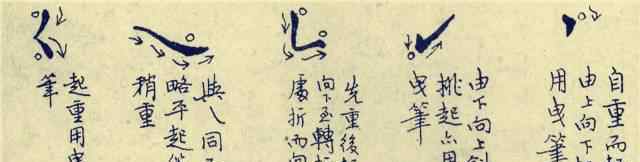 自重而
由上向下
用曳筆
由下向上
挑起亦用
曳筆
先重後
向下至轉
處折而向
與乀同
略平起
稍重
起重用曳
筆